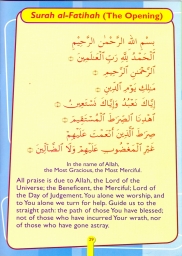 Surah al-Fatihah (The Opening)
بِسْمِ اللَّهِ الرَّحْمَٰنِ الرَّحِيمِ
الْحَمْدُ لِلَّهِ رَبِّ الْعَالَمِينَ
الرَّحْمَٰنِ الرَّحِيمِ
مَالِكِ يَوْمِ الدِّينِ
إِيَّاكَ نَعْبُدُ وَإِيَّاكَ نَسْتَعِينُ
اهْدِنَا الصِّرَاطَ الْمُسْتَقِيمَ
صِرَاطَ الَّذِينَ أَنْعَمْتَ عَلَيْهِمْ
غَيْرِ الْمَغْضُوبِ عَلَيْهِمْ وَلَا الضَّالِّينَ
In the name of Allah,
the Most Gracious, the Most Merciful.
All praise is due to Allah, the Lord of the
Universe; the Beneficent, the Merciful; Lord of
the Day of Judgement. You alone we worship, and
to You alone we turn for help. Guide us to the
straight path: the path of those You have blessed;
not of those who have incurred Your wrath, nor
of those who have gone astray.
39